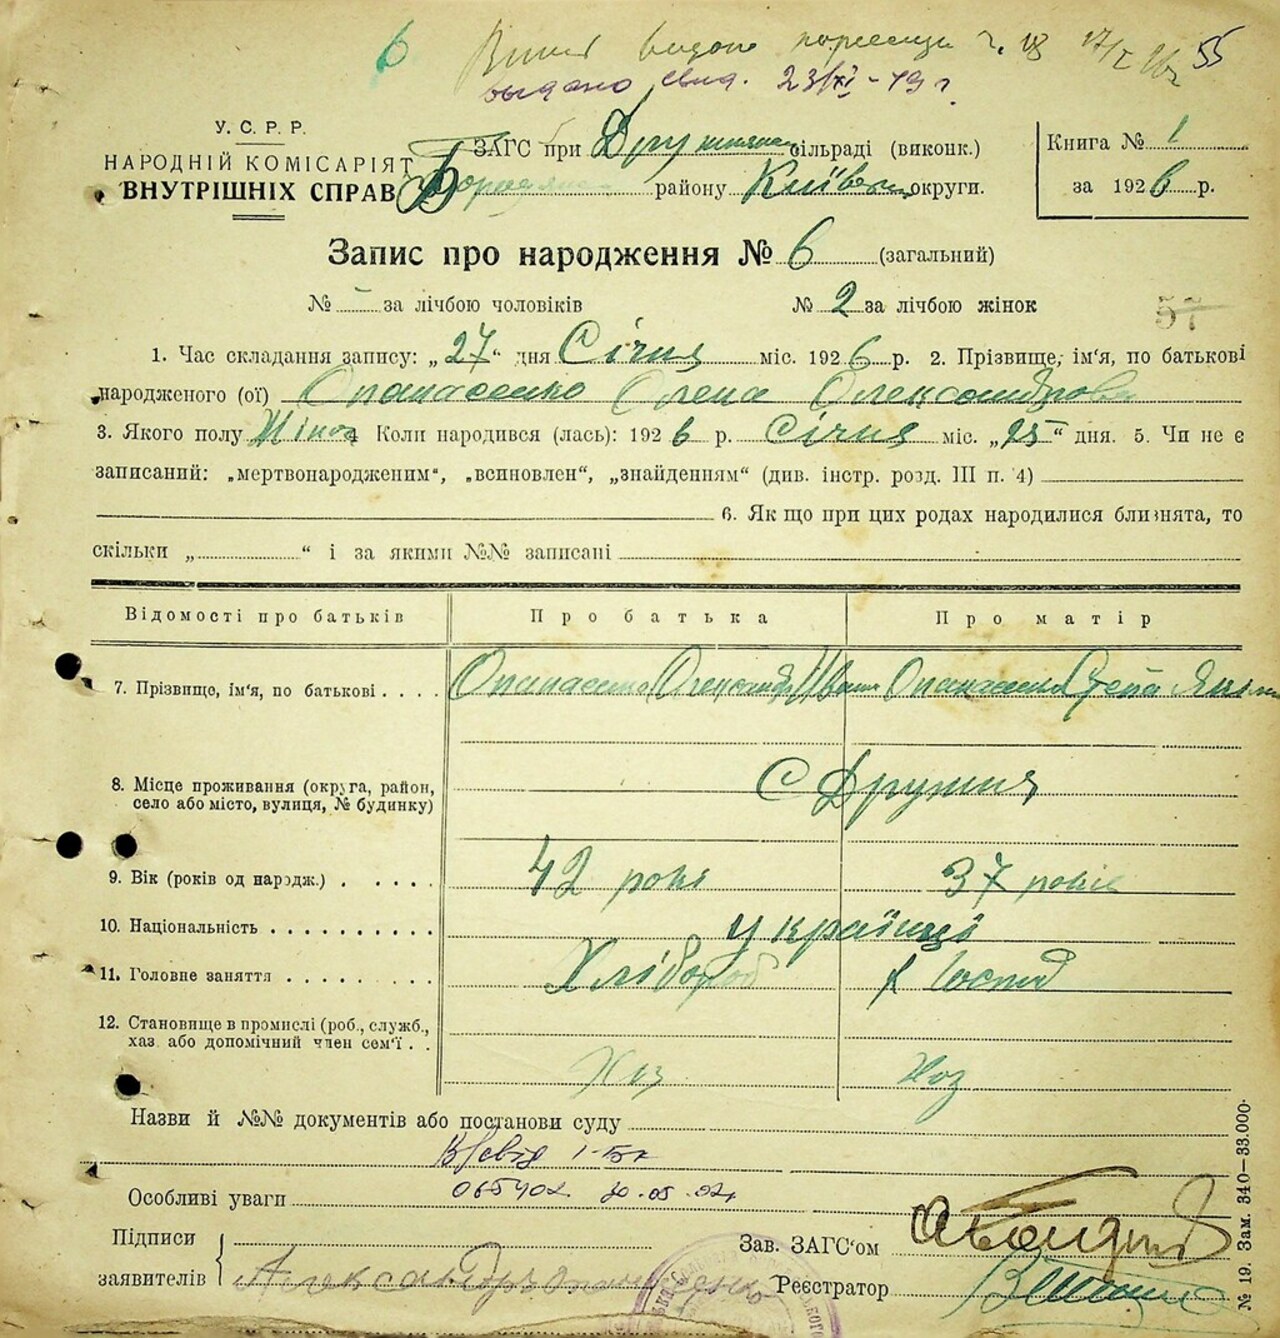 видано свид. 23/XI-49 г.
55
У. С. Р. Р.
НАРОДНІЙ КОМІСАРІЯТ
ВНУТРІШНІХ СПРАВ
ЗАГС при сільраді (виконк.)
району Київськ округи.
Книга № 1
за 1926 р.
Запис про народження № 6 (загальний)
№ за лічбою чоловіків № 2 за лічбою жінок
57
1. Час складання запису: „27“ дня Січня міс. 1926 р. 2. Прізвище, ім'я, по батькові
народженого (ої) Опанасенко Олена Олександрова
3. Якого полу Жіноч 4 Коли народився (лась): 1926 р. Січня міс. „25“ дня. 5. Чи не є
записаний: „мертвонародженим“, „всиновлен“, „знайденням“ (див. інстр. розд. III п. 4)
6. Як що при цих родах народилися близнята, то
скільки „ “ і за якими №№ записані
Відомості про батьків Про батька Про матір
7. Прізвище, ім'я, по батькові . . . . Опанасенко Олександр Іван Опанасенко
8. Місце проживання (округа, район,
село або місто, вулиця, № будинку)
С Дружня
9. Вік (років од народж.) . . . . . 42 рокі 37 років
10. Національність . . . . . . . . . . українці
11. Головне заняття . . . . . . . . Хлібороб
12. Становище в промислі (роб., служб.,
хаз. або допомічний член сем'ї . .
Хоз Хоз
Назви й №№ документів або постанови суду
Особливі уваги
Підписи
заявителів
Зав. ЗАГС'ом
Реєстратор
№ 19. Зам. 340—33.000.